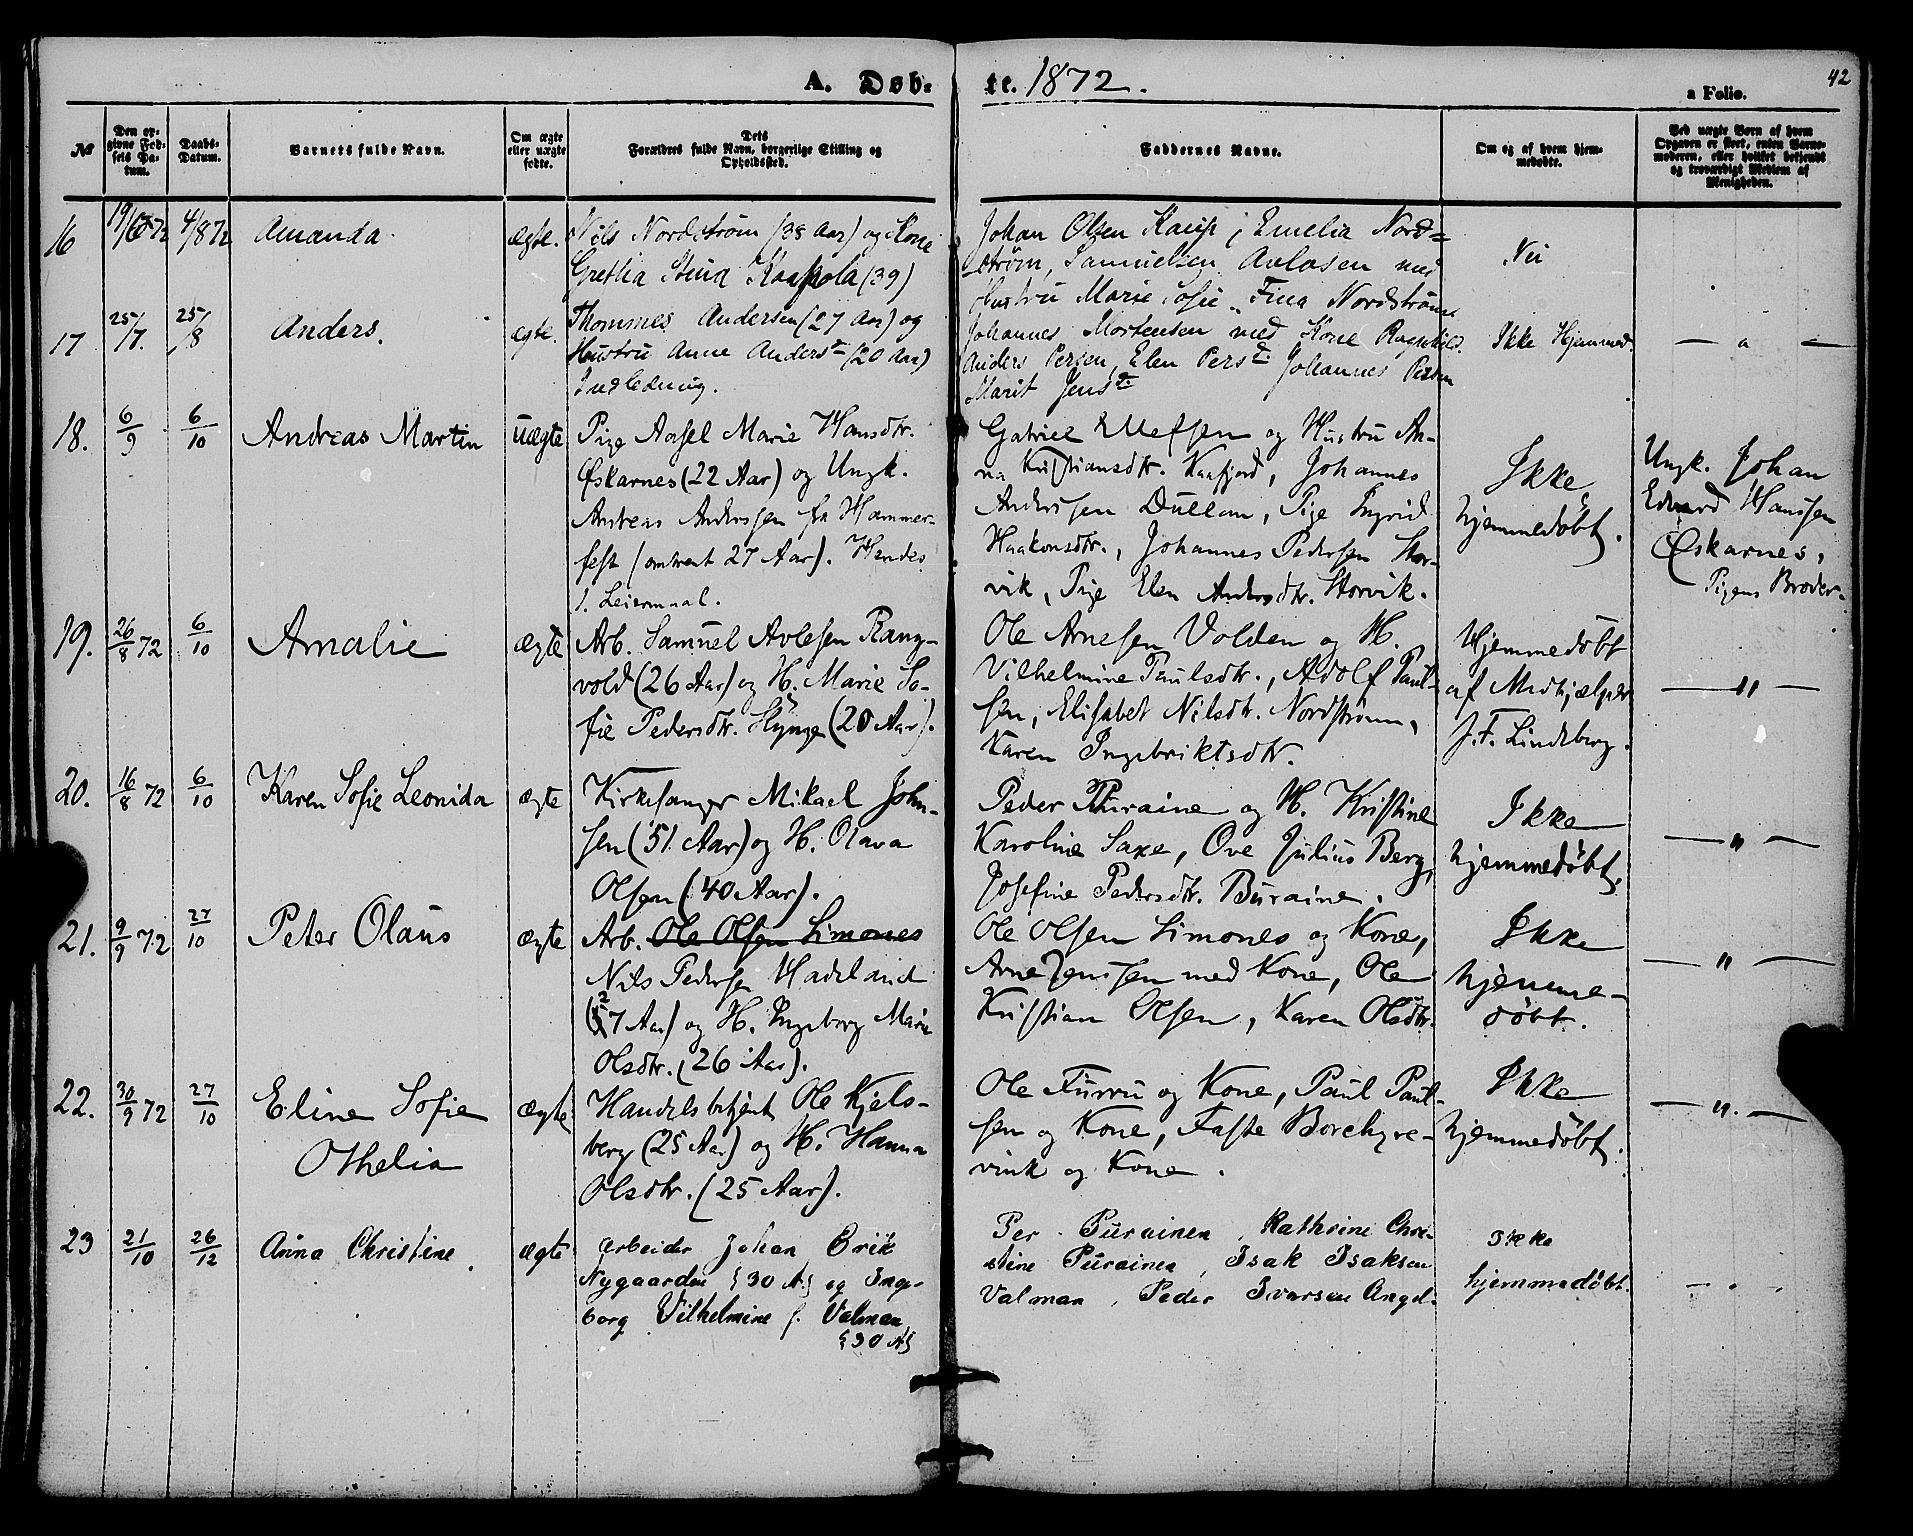 A. Døb- te. 1872.
42
a Folio.
№
Den opgivne Fødsels Datum.
Daabs-Datum.
Barnets fulde Navn.
Om ægte eller uægte fødte.
Dets Forældres fulde Navn, borgerlige Stilling og Opholdssted.
Faddernes Navne.
Om og af hvem hjemmedøbte.
Ved uægte Børn af hvem Opgaven er skeet, enten Barnemoderen, eller hvilket bekjendt og troværdigt Medlem af Menigheden.
16
19/6 72
4/8 72
Amanda
ægte.
Nils Nordstrøm (38 Aar) og Kone
Gretha Stina Kaapola (39)
Johan Olsen Kaup; Emelia Nord=
strøm, Samuelsen Avlosen med
Hustru Marie Sofie, Fina Nordstrøm
Nei
17
25/7.
25/8
Anders.
ægte.
Thommes Andersen (27 Aar) og
Hustru Anne Andersdtr (20 Aar)
Indledning.
Johannes Mortensen med Kone Ragnhild.
Anders Persen, Elen Persdtr. Johannes Persen
Marit Jensdtr.
Ikke Hjemmed.
— " —
18.
6/9
6/10
Andreas Martin
uægte
Pige Aasel Marie Hansdtr.
Øskarnes (22 Aar) og Ungk.
Andreas Anderssen fra Hammer-
fest (omtrent 27 Aar). Hendes
1. Leiermaal.
Gabriel Ulefsen og Hustru An-
na Kristiansdtr. Kaafjord, Johannes
Anderssen Dullam, Pige Ingrid
Haakonsdtr., Johannes Pedersen Stor-
vik, Pige Elen Andersdtr. Storvik.
Ikke
hjemmedøbt.
Ungk. Johan
Edvard Hanssen
Øskarnes,
Pigens Broder.
19.
26/8 72
6/10
Amalie
ægte
Arb. Samuel Avlesen Rang-
vold (26 Aar) og H. Marie So-
fie Pedersdtr. Hynge (20 Aar).
Ole Arnesen Volden og H.
Vilhelmine Paulsdtr., Adolf Paul-
sen, Elisabet Nilsdtr. Nordstrøm,
Karen Ingebriktsdtr.
Hjemmedøbt
af Medhjælper
J. F. Lindeberg.
— " —
20.
16/8 72
6/10
Karen Sofie Leonida
ægte
Kirkesanger Mikael John-
sen (51 Aar) og H. Olava
Olsen (40 Aar).
Peder Puraine og H. Kristine
Karoline Saxe, Ove Julius Berg,
Josefine Pedersdtr. Buraine.
Ikke
hjemmedøbt.
— " —
21.
9/9 72
27/10
Peter Olaus
ægte
Arb. Ole Olsen Simones
Nils Pedersen Hadeland
(27 Aar) og H. Ingeborg Marie
Olsdtr. (26 Aar).
Ole Olsen Simones og Kone,
Arne Jenssen med Kone, Ole
Kristian Olsen, Karen Olsdtr.
Ikke
hjemme-
døbt.
— " —
22.
30/9 72
27/10
Eline Sofie
Othelia
ægte
Handelsbetjent Ole Kjels-
berg (25 Aar) og H. Hanna
Olsdtr. (25 Aar).
Ole Furru og Kone, Paul Paul-
sen og Kone, Faste Borchgre-
vink og Kone.
Ikke
hjemmedøbt.
— " —
23
21/10
26/12
Anna Christine.
ægte
Arbeider Johan Erik
Nygaarden {30 A} og Inge-
borg Vilhelmine f. Valman
{30 A}
Per Purainen, Kathrine Chri-
stine Purainen, Isak Isaksen
Valman, Peder Ivarsen Angel.
Ikke
hjemmedøbt.
— " —